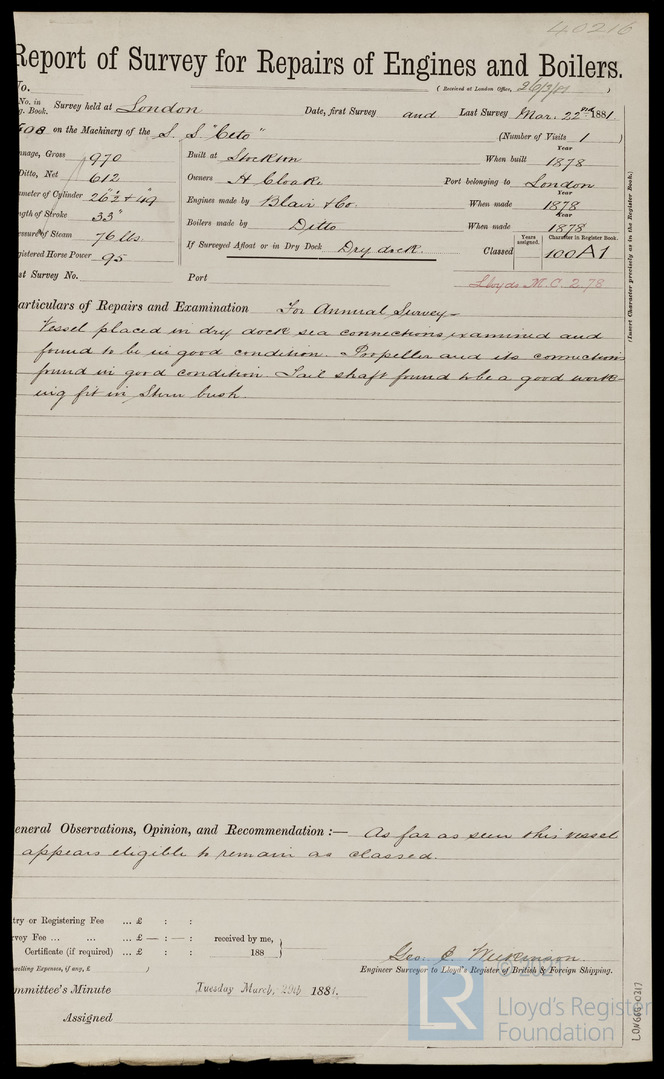 40216
Report of Survey for Repairs of Engines and Boilers.
No. (Received at London Office, 26/3/81 )
No. in Reg. Book. Survey held at London Date, first Survey and Last Survey Mar. 22nd 1881.
408 on the Machinery of the S. S. "Ceto" (Number of Visits 1 )
nnage, Gross 970 Built at Stockton When built Year 1878
Ditto, Net 612 Owners H Cloake Port belonging to London
meter of Cylinder 26½" & 49" Engines made by Blair & Co. When made Year 1878
ngth of Stroke 33" Boilers made by Ditto When made Year 1878
ssure of Steam 76 lbs. If Surveyed Afloat or in Dry Dock Dry dock. Classed Years assigned. Character in Register Book. 100 A1
gistered Horse Power 95
st Survey No. Port Lloyds M.C. 2.78
(Insert Character precisely as in the Register Book.)
articulars of Repairs and Examination For Annual Survey -
Vessel placed in dry dock sea connections examined and
found to be in good condition. Propeller and its connections
found in good condition. Tail shaft found to be a good work-
ing fit in Stern bush.
eneral Observations, Opinion, and Recommendation :— As far as seen this vessel
appears eligible to remain as classed.
try or Registering Fee ... £ : :
rvey Fee ... ... ... £ — : — : received by me,
Certificate (if required) ... £ : : 188
velling Expenses, if any, £ )
Geo. Wilkinson
Engineer Surveyor to Lloyd's Register of British & Foreign Shipping.
mmittee's Minute Tuesday March, 29th 1881.
Assigned
© 2021
LR
Lloyd's Register
Foundation
LON666-0317